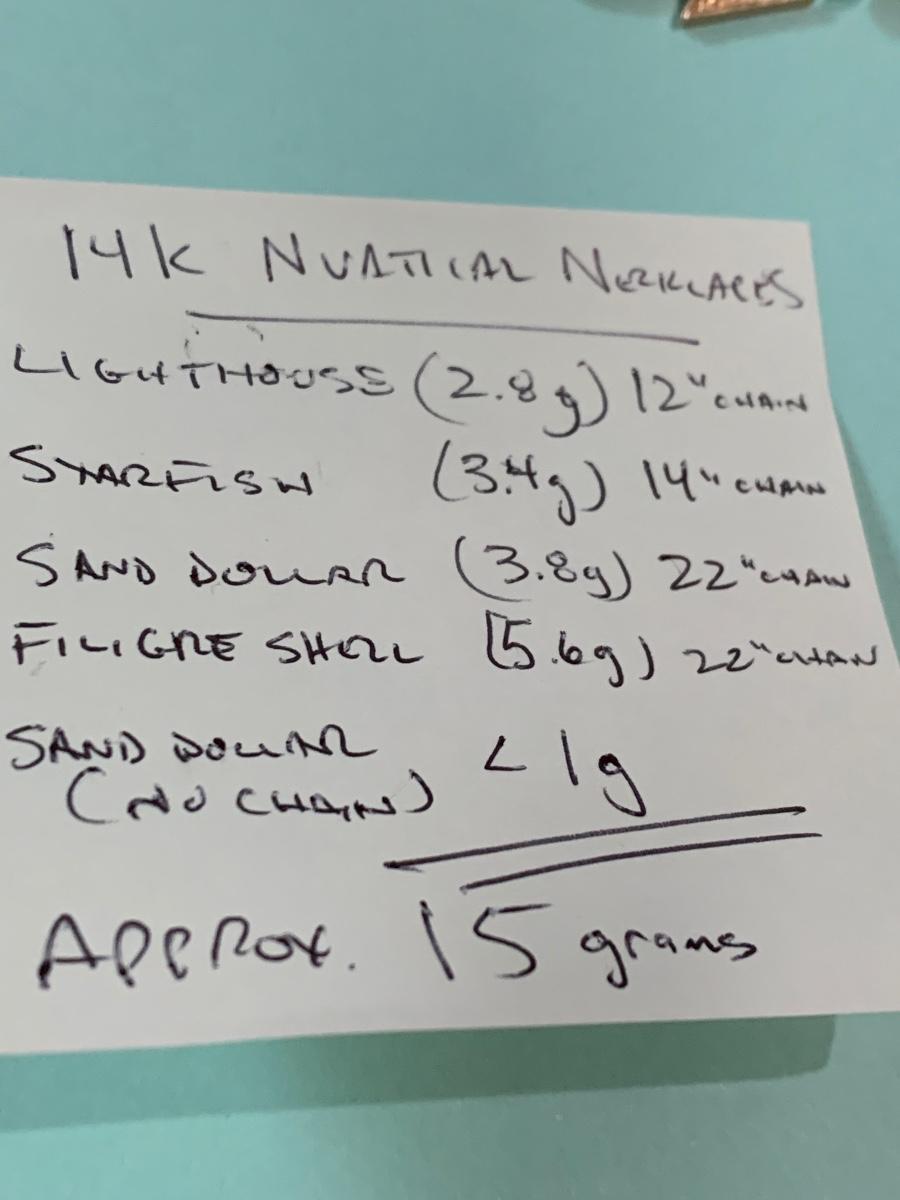 14k NUATICAL NECKLACES
LIGHTHOUSE (2.8g) 12" CHAIN
STARFISH (3.4g) 14" CHAIN
SAND DOLLAR (3.8g) 22" CHAIN
FILIGRE SHELL (5.6g) 22" CHAIN
SAND DOLLAR < 1g
(NO CHAIN)
APPROX. 15 grams